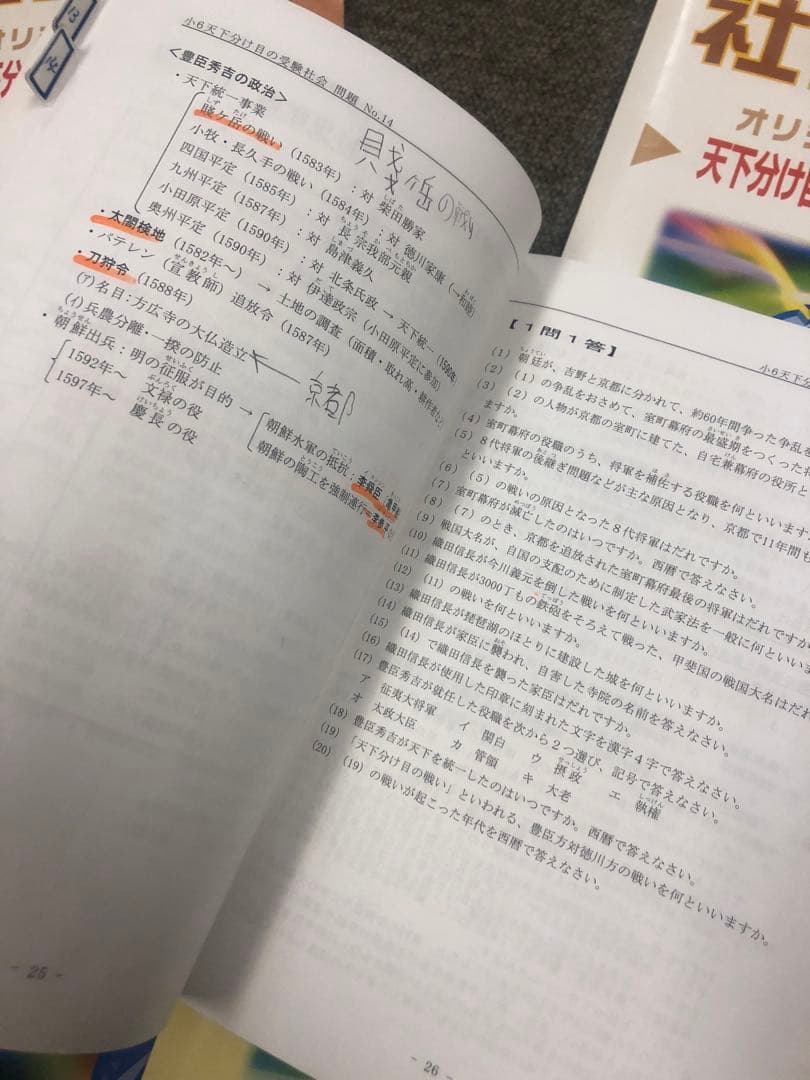 小6天下分け目の受験社会 問題 No.14
<豊臣秀吉の政治>
・天下統一事業
賤ヶ岳の戦い (1583年) : 対 柴田勝家
小牧・長久手の戦い (1584年) : 対 徳川家康 (→和睦)
四国平定 (1585年) : 対 長宗我部元親
九州平定 (1587年) : 対 島津義久
小田原平定 (1590年) : 対 北条氏政 → 天下統一 (1590年)
奥州平定 (1590年) : 対 伊達政宗 (小田原平定に参加)
・太閤検地 (1582年~) → 土地の調査 (面積・取れ高・耕作者など)
・バテレン (宣教師) 追放令 (1587年)
・刀狩令 (1588年)
(ア)名目:方広寺の大仏造立
京都
(イ)兵農分離・一揆の防止
・朝鮮出兵:明の征服が目的 →
朝鮮水軍の抵抗:李舜臣
朝鮮の陶工を強制連行
1592年~ 文禄の役
1597年~ 慶長の役
ヶ岳の戦い
- 25 -
小6天下分
【1問1答】
(1) 朝廷が、吉野と京都に分かれて、約60年間争った争乱を
(2) (1)の争乱をおさめて、室町幕府の最盛期をつくった将
(3) (2)の人物が京都の室町に建てた、自宅兼幕府の役所と
ますか。
(4) 室町幕府の役職のうち、将軍を補佐する役職を何といいます
(5) 8代将軍の後継ぎ問題などが主な原因となり、京都で11年間も
といいますか。
(6) (5)の戦いの原因となった8代将軍はだれですか。
(7) 室町幕府が滅亡したのはいつですか。西暦で答えなさい。
(8) (7)のとき、京都を追放された室町幕府最後の将軍はだれですか
(9) 戦国大名が、自国の支配のために制定した武家法を一般に何といいま
(10) 織田信長が今川義元を倒した戦いを何といいますか。
(11) 織田信長が3000丁もの鉄砲をそろえて戦った、甲斐国の戦国大名はだれ
(12) (11)の戦いを何といいますか。
(13) 織田信長が琵琶湖のほとりに建設した城を何といいますか。
(14) 織田信長が家臣に襲われ、自害した寺院の名前を答えなさい。
(15) (14)で織田信長を襲った家臣はだれですか。
(16) 織田信長が使用した印章に刻まれた文字を漢字4字で答えなさい。
(17) 豊臣秀吉が就任した役職を次から2つ選び、記号で答えなさい。
ア 征夷大将軍 イ 関白 ウ 摂政 エ 執権
オ 太政大臣 カ 管領 キ 大老
(18) 豊臣秀吉が天下を統一したのはいつですか。西暦で答えなさい。
(19) 「天下分け目の戦い」といわれる、豊臣方対徳川方の戦いを何といいますか。
(20) (19)の戦いが起こった年代を西暦で答えなさい。
- 26 -
社
オリ
天下分け目
オリジ
天下分
13